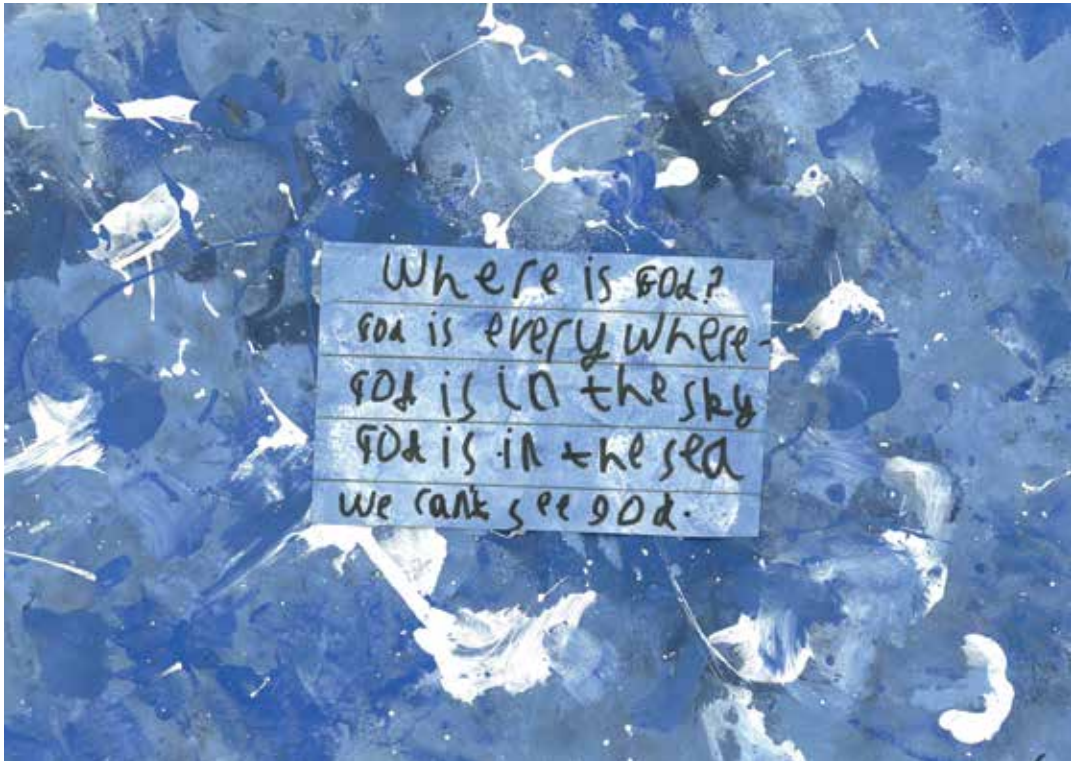 Where is GOd?
GOd is every where.
GOd is in the sky
GOd is in the sea
we can't see gOd.